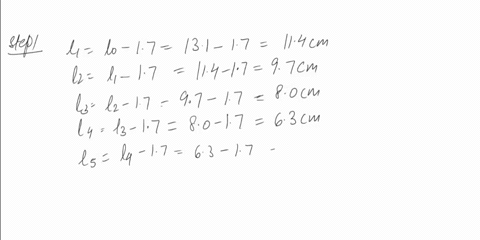 step1 l₁ = l₀ - 1.7 = 13.1 - 1.7 = 11.4 cm
l₂ = l₁ - 1.7 = 11.4 - 1.7 = 9.7 cm
l₃ = l₂ - 1.7 - 9.7 - 1.7 = 8.0 cm
l₄ = l₃ - 1.7 = 8.0 - 1.7 = 6.3 cm
l₅ = l₄ - 1.7 = 6.3 - 1.7 -